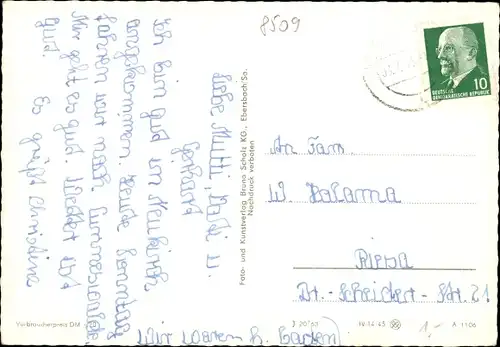 8509
10
DEUTSCHE
DEMOKRATISCHE REPUBLIK
Liebe Mutti, Vati u.
Gerhard
Ich bin gut in Neukirch
angekommen. Heute Sonntag
fahren wir nach
Mir geht es gut. Wetter ist
gut. Es grüßt Christine
(Wir waren h. baden)
Foto- und Kunstverlag Bruno Scholz KG., Ebersbach/Sa.
Nachdruck verboten
An Fam.
W. Halama
Riesa
Dr.-Scheider-Str. 21
Verbraucherpreis DM
IV-14-45
A 1106
1,-